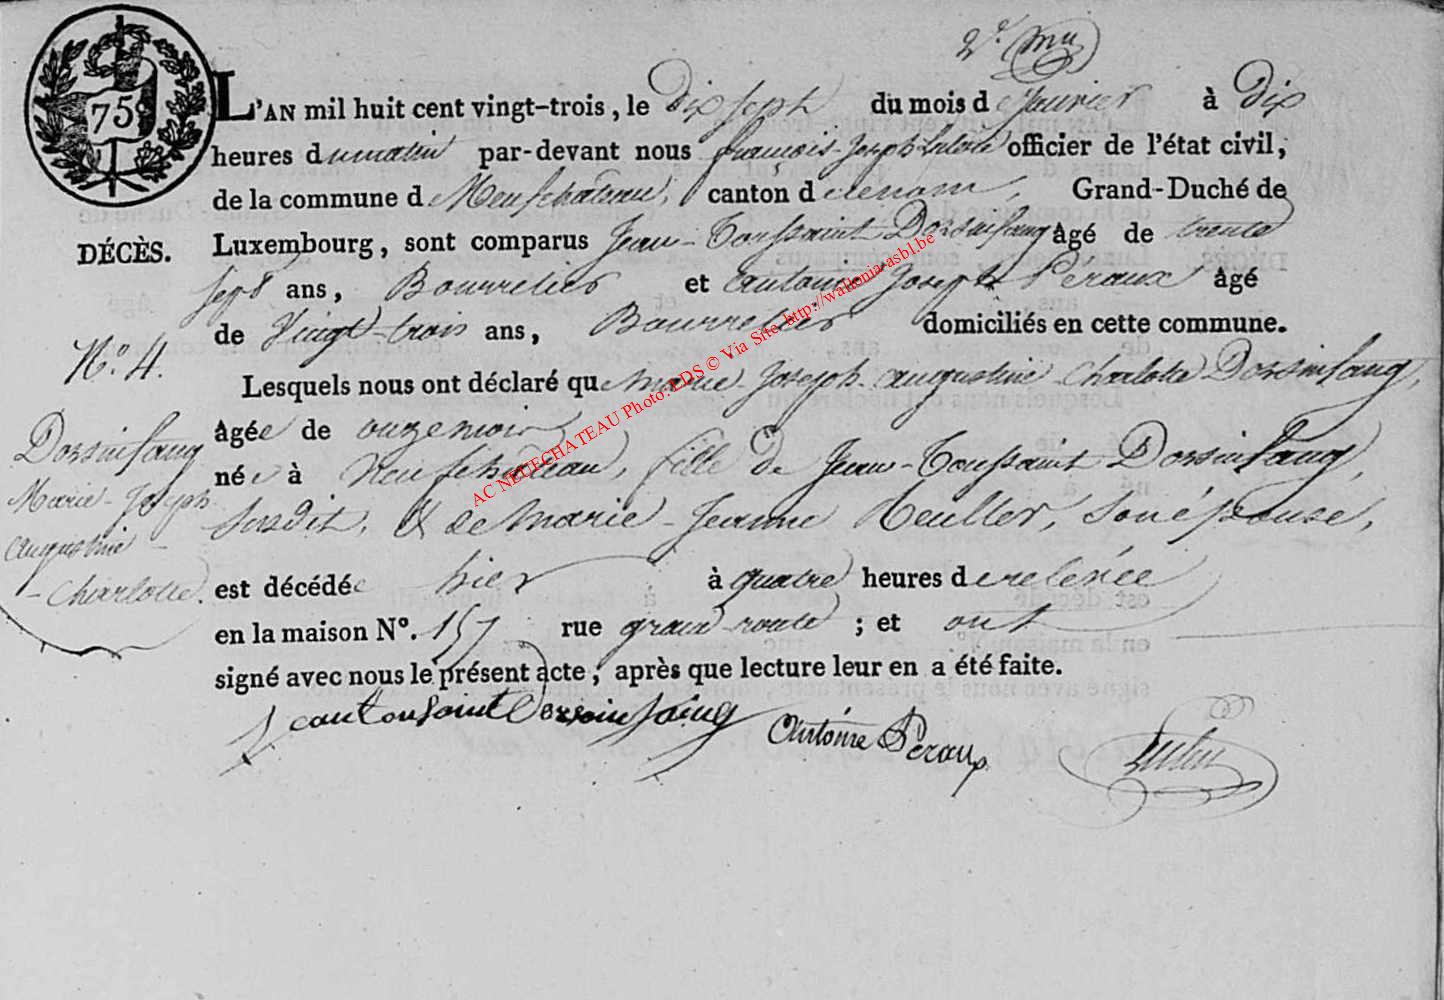 75c
L'AN mil huit cent vingt-trois, le dix sept du mois de janvier à dix
heures du matin par-devant nous françois Joseph officier de l'état civil,
de la commune de Neufchateau, canton d Grand-Duché de
DÉCÈS.
Luxembourg, sont comparus Jean-Toussaint Dorsinfang âgé de trente
sept ans, Bourrelier et antoine Joseph Peraux âgé
de Vingt-trois ans, Bourrelier domiciliés en cette commune.
N.o 4.
Lesquels nous ont déclaré que Marie-Joseph-augustine-charlotte Dorsinfang,
âgée de onze mois
née à Neufchateau, fille de Jean-Toussaint Dorsinfang,
susdit, & de Marie-Jeanne Reuller, son épouse,
Dorsinfang
Marie-Joseph
augustine-
-charlotte.
est décédée hier à quatre heures de relevée
en la maison N.o 157 rue grand-route ; et ont
signé avec nous le présent acte, après que lecture leur en a été faite.
Jeantousaint Dorsinfaing
Antoine Peraux
AC NEUFCHATEAU Photo: EDS © Via Site: http://wallonia-asbl.be